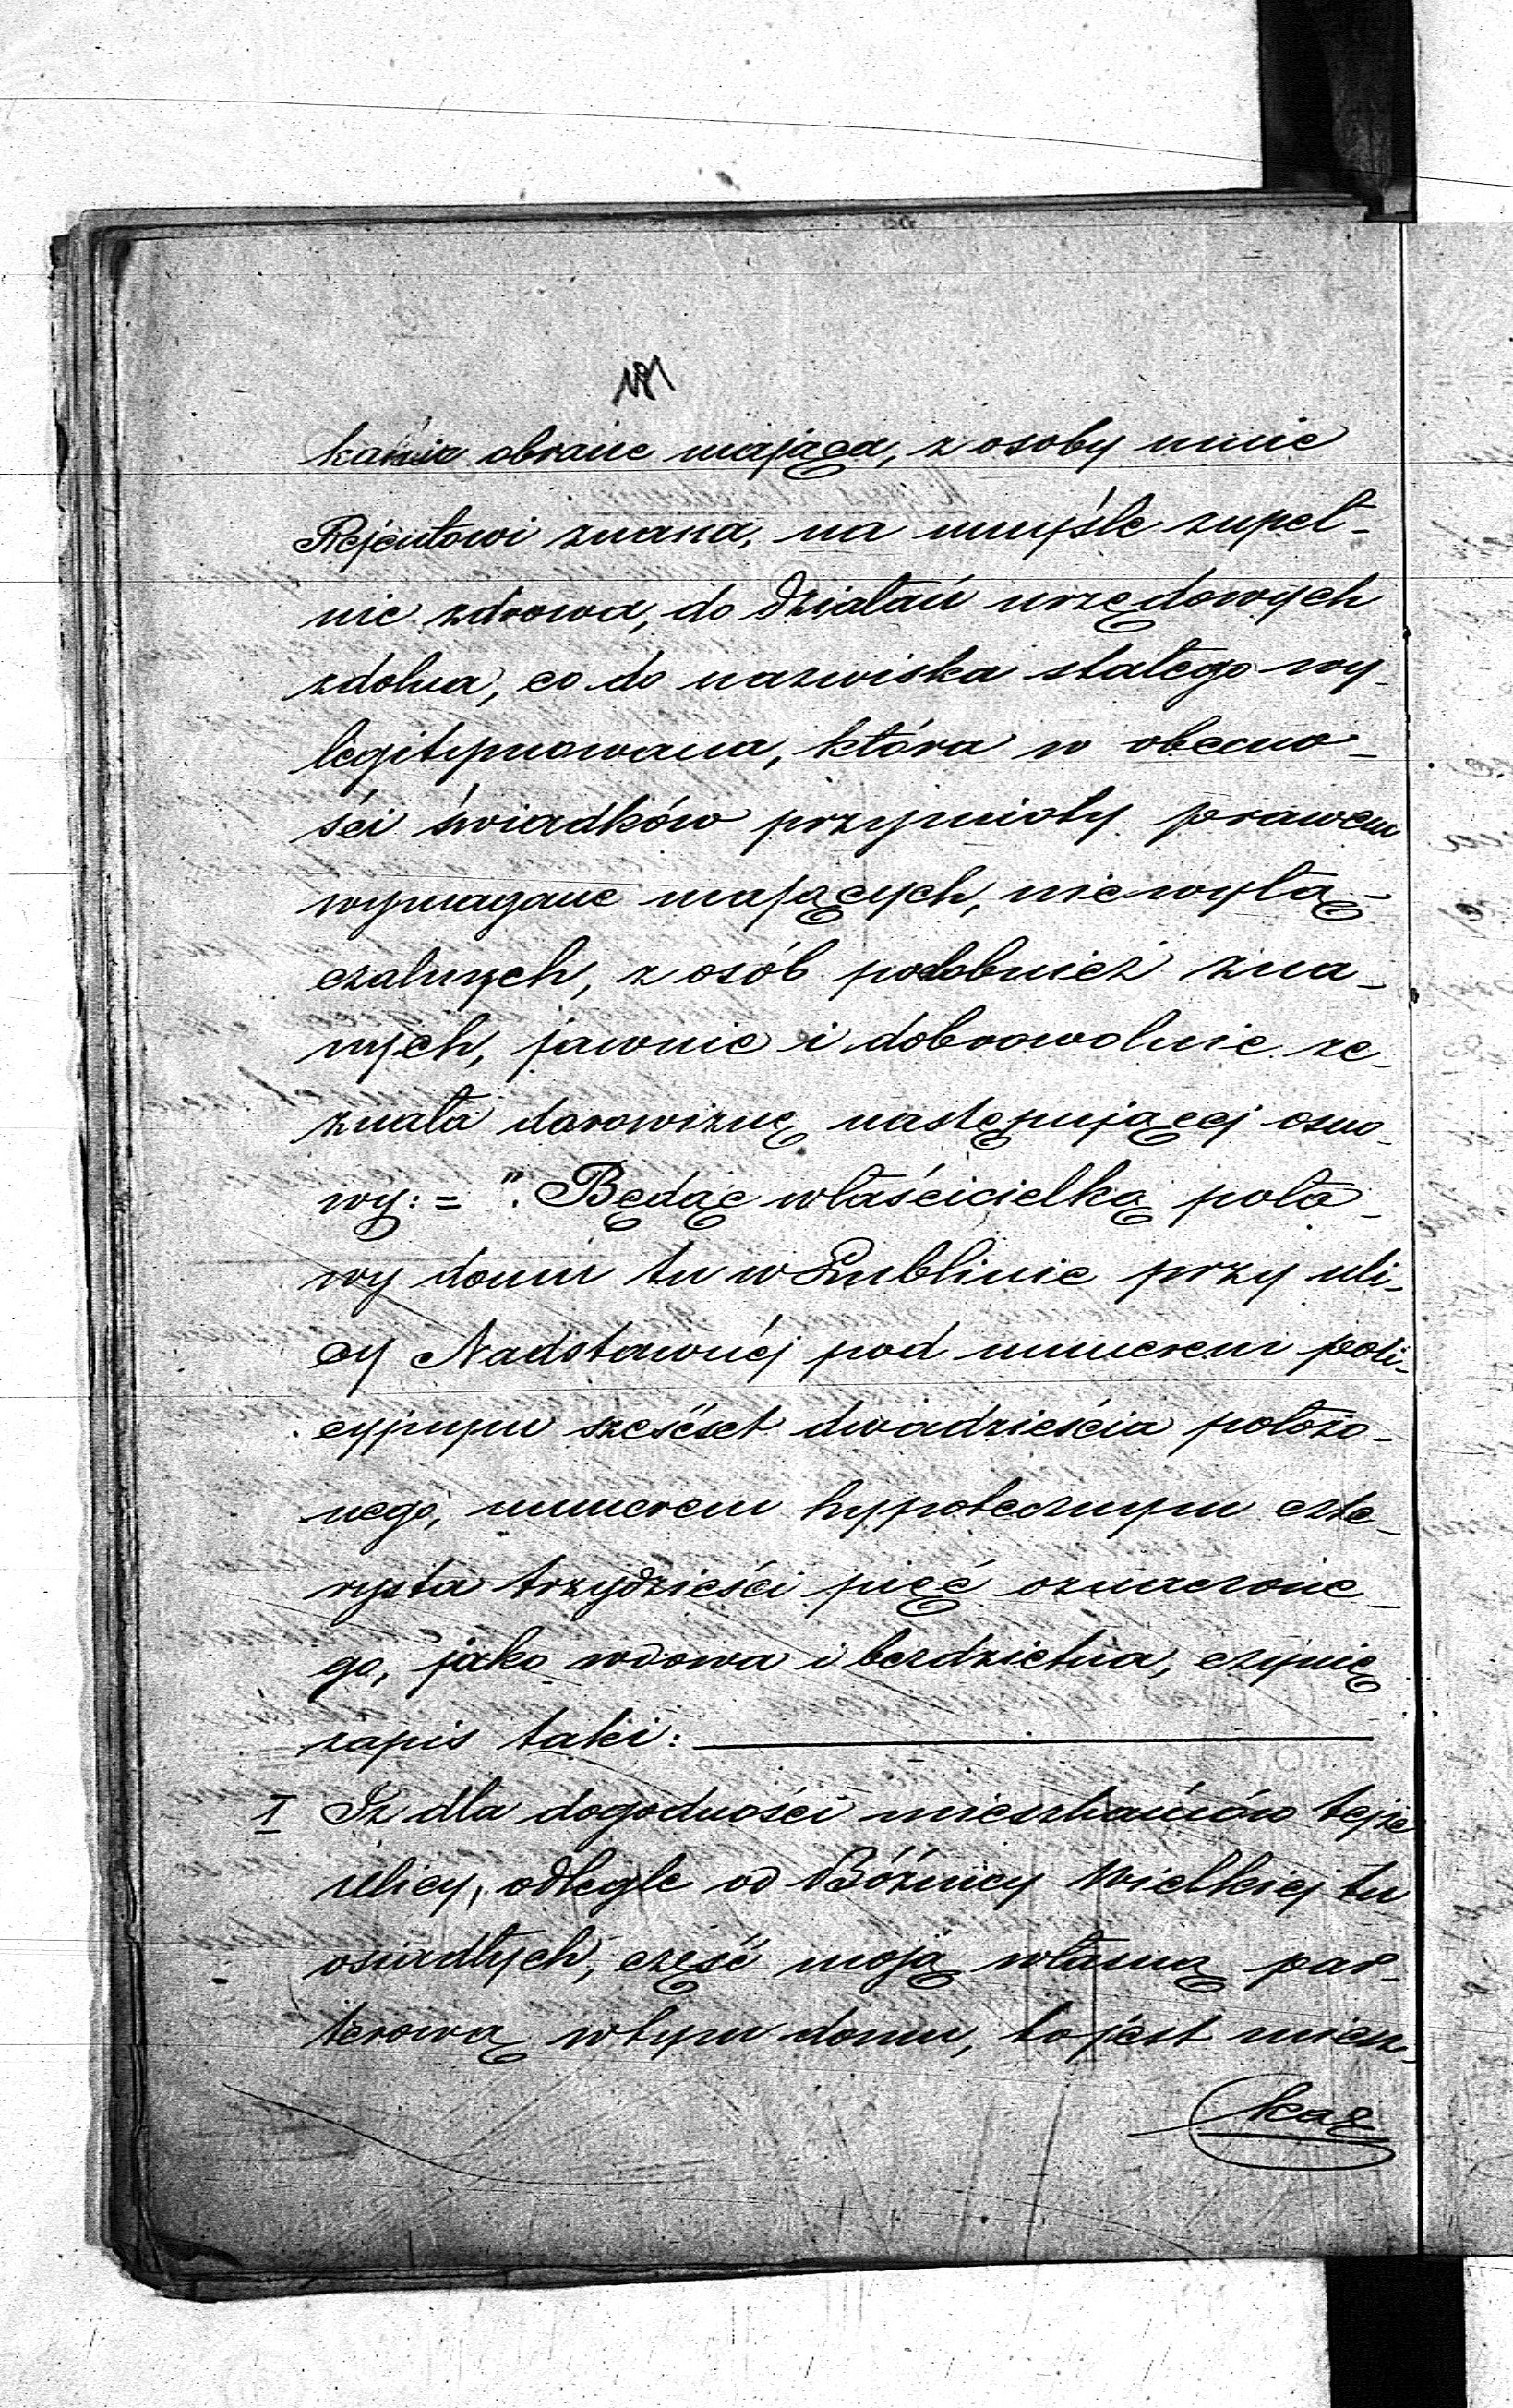 181
kania obrane mająca, z osoby mnie
Rejentowi znana, na umyśle zupeł-
nie zdrowa, do działań urzędowych
zdolna, co do nazwiska stałego wy-
legitymowana, która w obecno-
ści świadków przymioty prawem
wymagane mających, niewyłą-
czalnych, z osób podobnież zna-
nych, jawnie i dobrowolnie ze-
znała darowiznę następującej osno-
wy: = ". Będąc właścicielką poło-
wy domu tu w Lublinie przy uli-
cy Nadstawnéj pod numerem poli-
cyjnym sześćset dwadzieścia położo-
nego, numerem hypotecznym czte-
rysta trzydzieści pięć oznaczone-
go, jako wdowa i bezdzietna, czynię
zapis taki:
I Iż dla dogodności mieszkańców tejże
ulicy, odlegle od Bóżnicy Wielkiej tu
osiadłych, część moją własną par-
terową w tym domu, to jest miesz-
kaz